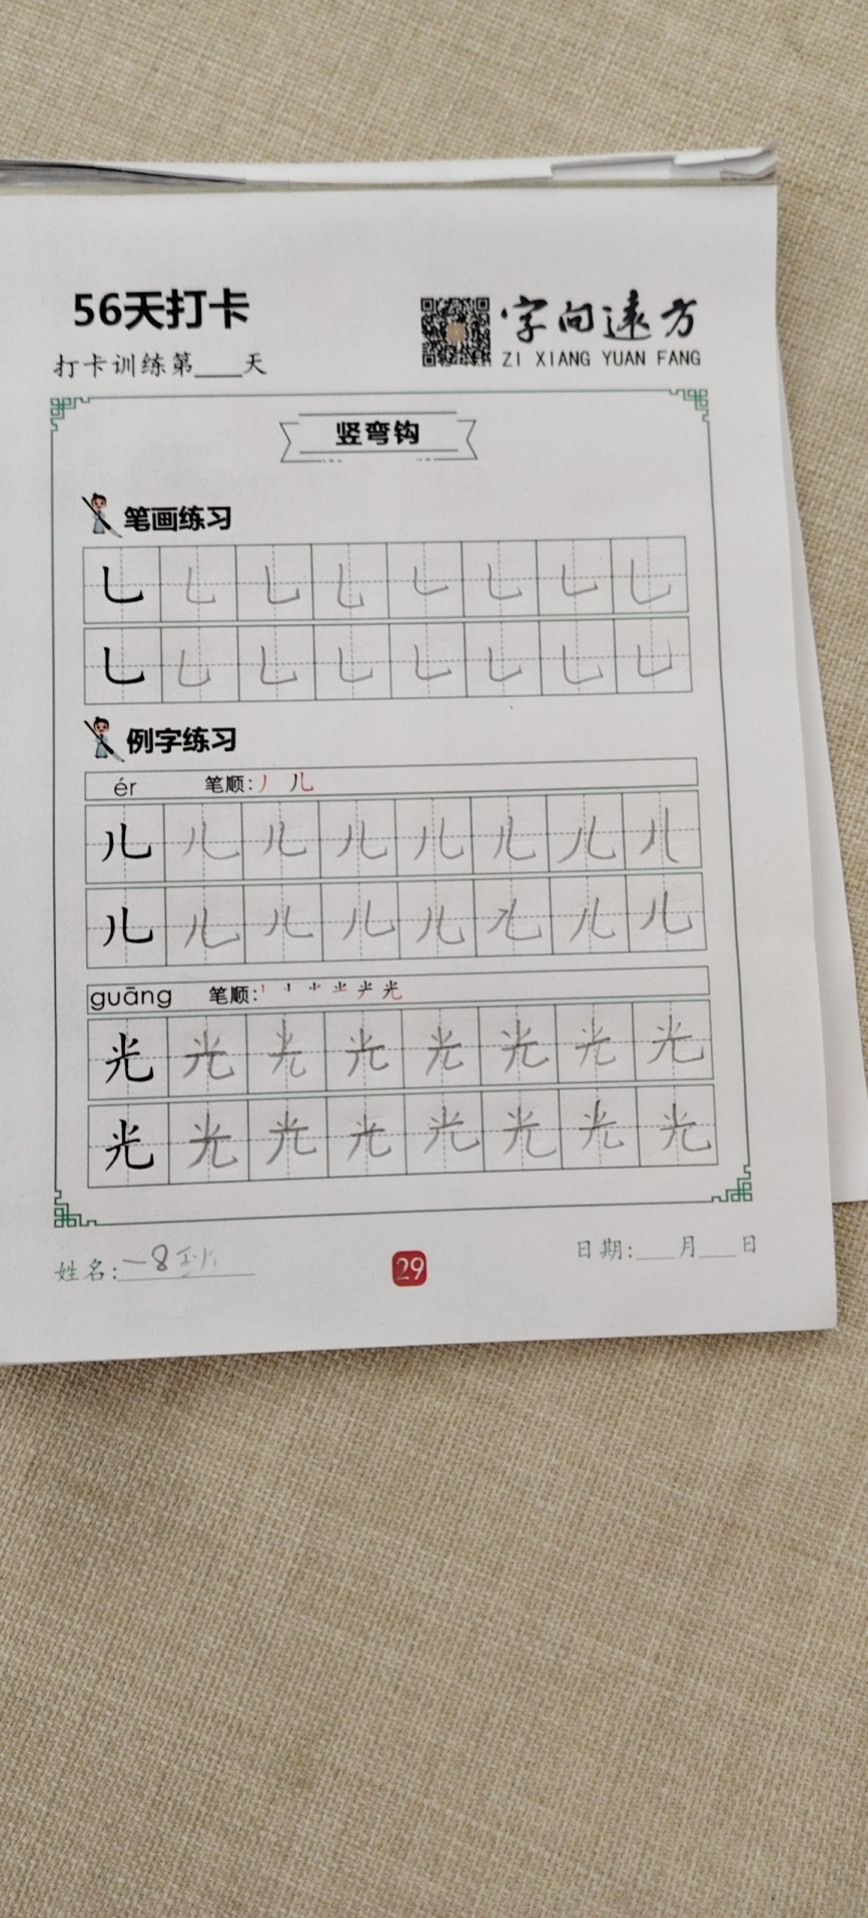 56天打卡
字向远方
ZI XIANG YUAN FANG
打卡训练第___天
竖弯钩
笔画练习
乚 乚 乚 乚 乚 乚 乚 乚
乚 乚 乚 乚 乚 乚 乚 乚
例字练习
ér 笔顺: 丿 儿
儿 儿 儿 儿 儿 儿 儿 儿
儿 儿 儿 儿 儿 儿 儿 儿
guāng 笔顺: 光
光 光 光 光 光 光 光 光
光 光 光 光 光 光 光 光
姓名: 一8班
29
日期:___月___日